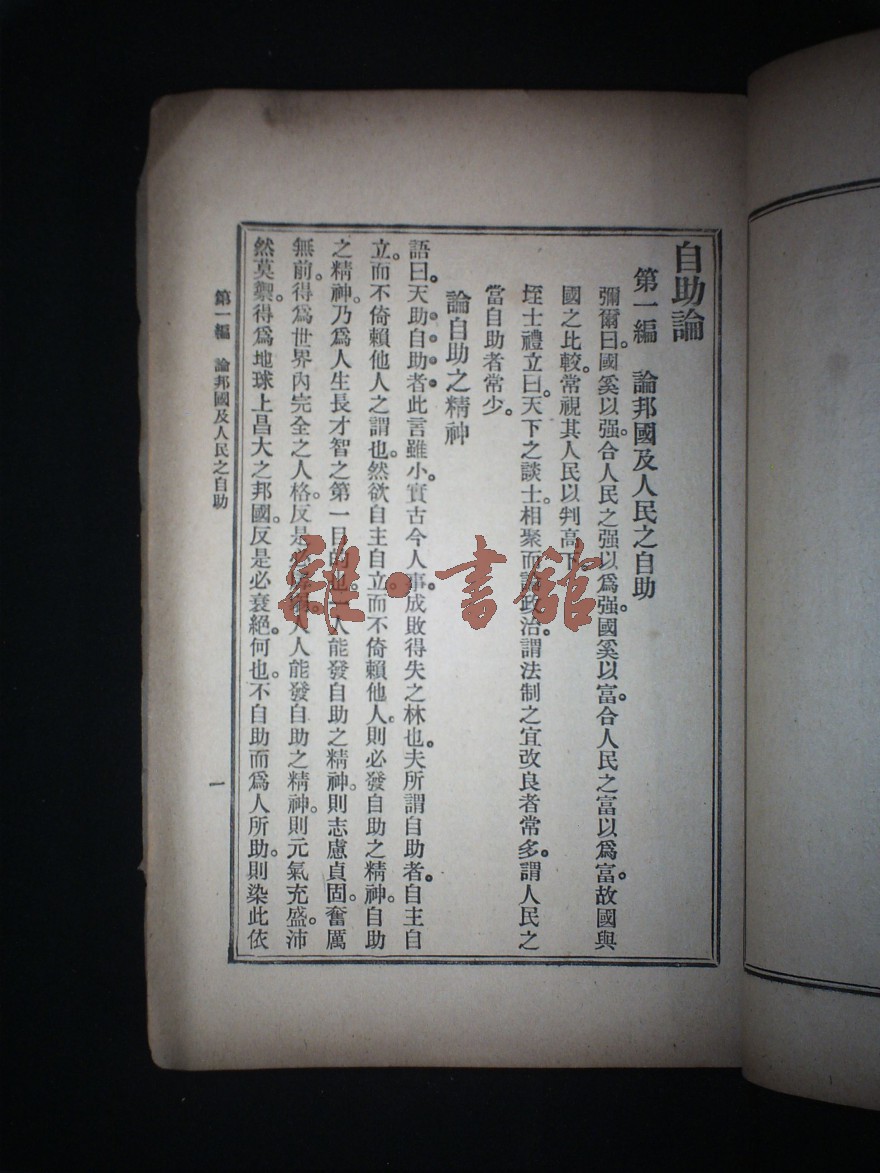 自助論
第一編　論邦國及人民之自助
彌爾曰。國奚以强。合人民之强以爲强。國奚以富。合人民之富以爲富。故國與
國之比較。常視其人民以判高下。
垤士禮立曰。天下之談士。相聚而論政治。謂法制之宜改良者常多。謂人民之
當自助者常少。
論自助之精神
語曰。天助自助者此言雖小。實古今人事成敗得失之林也。夫所謂自助者。自主自
立。而不倚賴他人之謂也。然欲自主自立。而不倚賴他人。則必發自助之精神。自助
之精神。乃爲人生長才智之第一目的也。一人能發自助之精神。則志慮貞固。奮厲
無前。得爲世界內完全之人格。反是必人人能發自助之精神。則元氣充盛。沛
然莫禦。得爲地球上昌大之邦國。反是必衰絕。何也。不自助而爲人所助。則染此依
第一編　論邦國及人民之自助
一
雜·書館